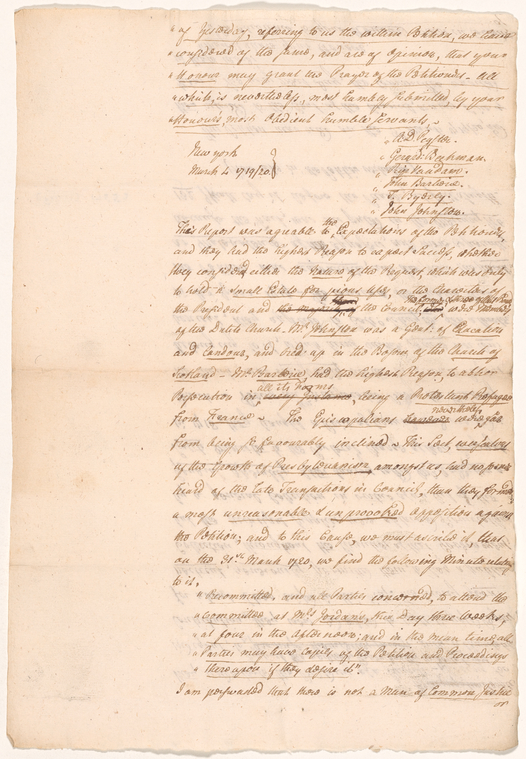 " of Yesterday, referring to us the within Petition, we have
" considered of the same, and are of Opinion, that your
" Honour may grant the Prayer of the Petitioners - All
" which, is nevertheless, most humbly submitted, by your
" Honours most Obedient humble Servants -
New York
March 4 1719/20.
" Gerard Beekman.
" Rip Van Dam.
" John Barbarie.
" T. Byerly.
" John Johnston.
This Report was agreable to the Expectations of the Petitioners,
and they had the highest Reason to expect Success, whether
they considered either the nature of the Request which was only
to hold a small Estate for pious Uses, or the Characters of
the President and the Council,
of the Dutch Church. Mr. Johnston was a Gent: of Education
and Candour, and bred up in the Bosom of the Church of
Scotland - Mr. Barbarie had the highest Reason, to abhor
Persecution in all its Forms, being a Protestant Refugee
from France - The Episcopalians nevertheless were far
from being so favourably inclined - This Sect,
of the Growth of Presbyterianism amongst us, had no sooner
heard of the late Transactions in Council, than they formed
a most unreasonable & unprovoked opposition against
the Petition, and to this Cause, we must ascribe it, that
on the 31st March 1720, we find the following Minute relating
to it,
" Recommitted, and all Parties concerned, to attend the
" Committee at Mrs. Jordans, this Day three weeks,
" at four in the afternoon; and in the mean time, all
" Parties may have Copies of the Petition and Proceedings
" thereupon if they desire it".
I am perswaded that there is not a Man of Common Justice
or